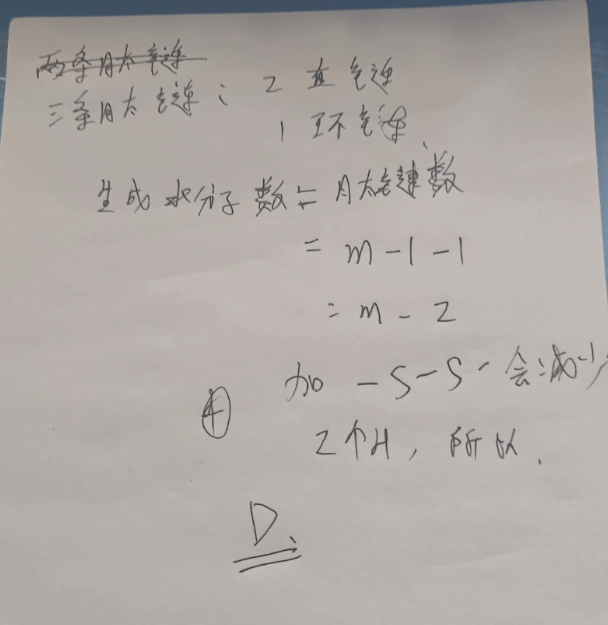 两条月太链
三条月太链：2直链
1环链、
生成水分子数=月太键数
= m-1-1
= m-2
④ 加 -S-S- 会减少
2个H，所以.
D、